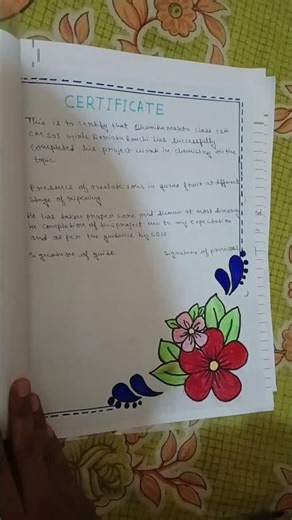 CERTIFICATE
This is to certify that class 12th
girls has successfully
completed his project work in chemistry on the
topic
Presence of oxalate ions in guava fruit at different
stage of ripening
He has taken proper care and at most sincerity
in completion of this project to my expectation
and as per the guideline by CBSE.
Signature of guide Signature of principal